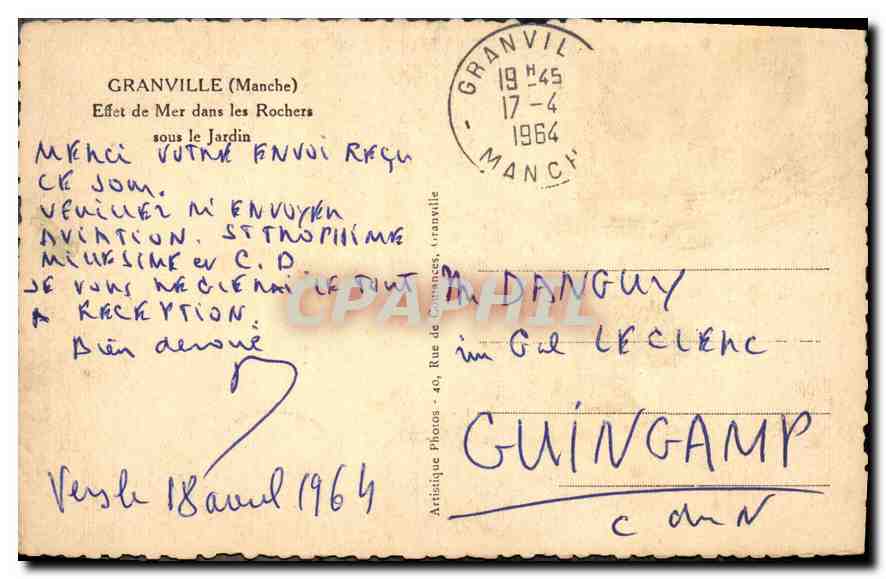 GRANVILLE (Manche)
Effet de Mer dans les Rochers
sous le Jardin
MERCI VOTRE ENVOI REÇU
CE JOUR.
VEUILLEZ M'ENVOYER
AVIATION. ST TROPHIME
MILLESIME et C.D
JE VOUS REGLERAI LE TOUT
A RECEPTION.
Bien dévoué
Vers le 18 avril 1964
GRANVIL
19H-45
17-4
1964
MANCH
Artistique Photos - 40, Rue de Coutances, Granville
Mr DANGUY
im Gal LECLERC
GUINGAMP
C du N
CPAPHIL